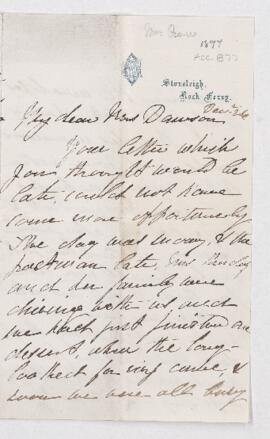 1877
ACC. 877
Stoneleigh,
Rock Ferry.
My dear Mrs Dawson
Your letter which
you thought would be
late, could not have
come more opportunely
The day was snowy, & the
postman late, Mrs
and her family were
dining with us and
we had just finished our
dessert, when the long-
looked for came, &
soon we were all busy